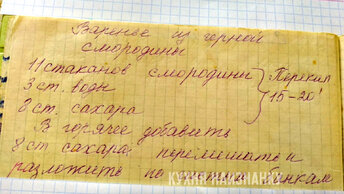 Варенье из черной
смородины
11 стаканов смородины
3 ст. воды
8 ст. сахара
Перекип
15-20'
В горячее добавить
8 ст. сахара, перемешать и
разложить по